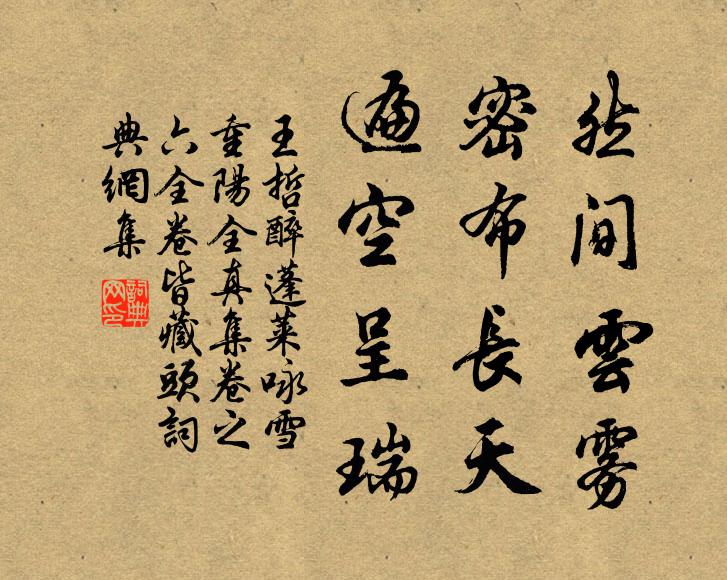 然間雲雾
密布長天
遍空呈瑞
王哲醉蓬莱咏雪
重陽全真集卷之
六全卷皆藏頭詞
典網集
詞典
网印